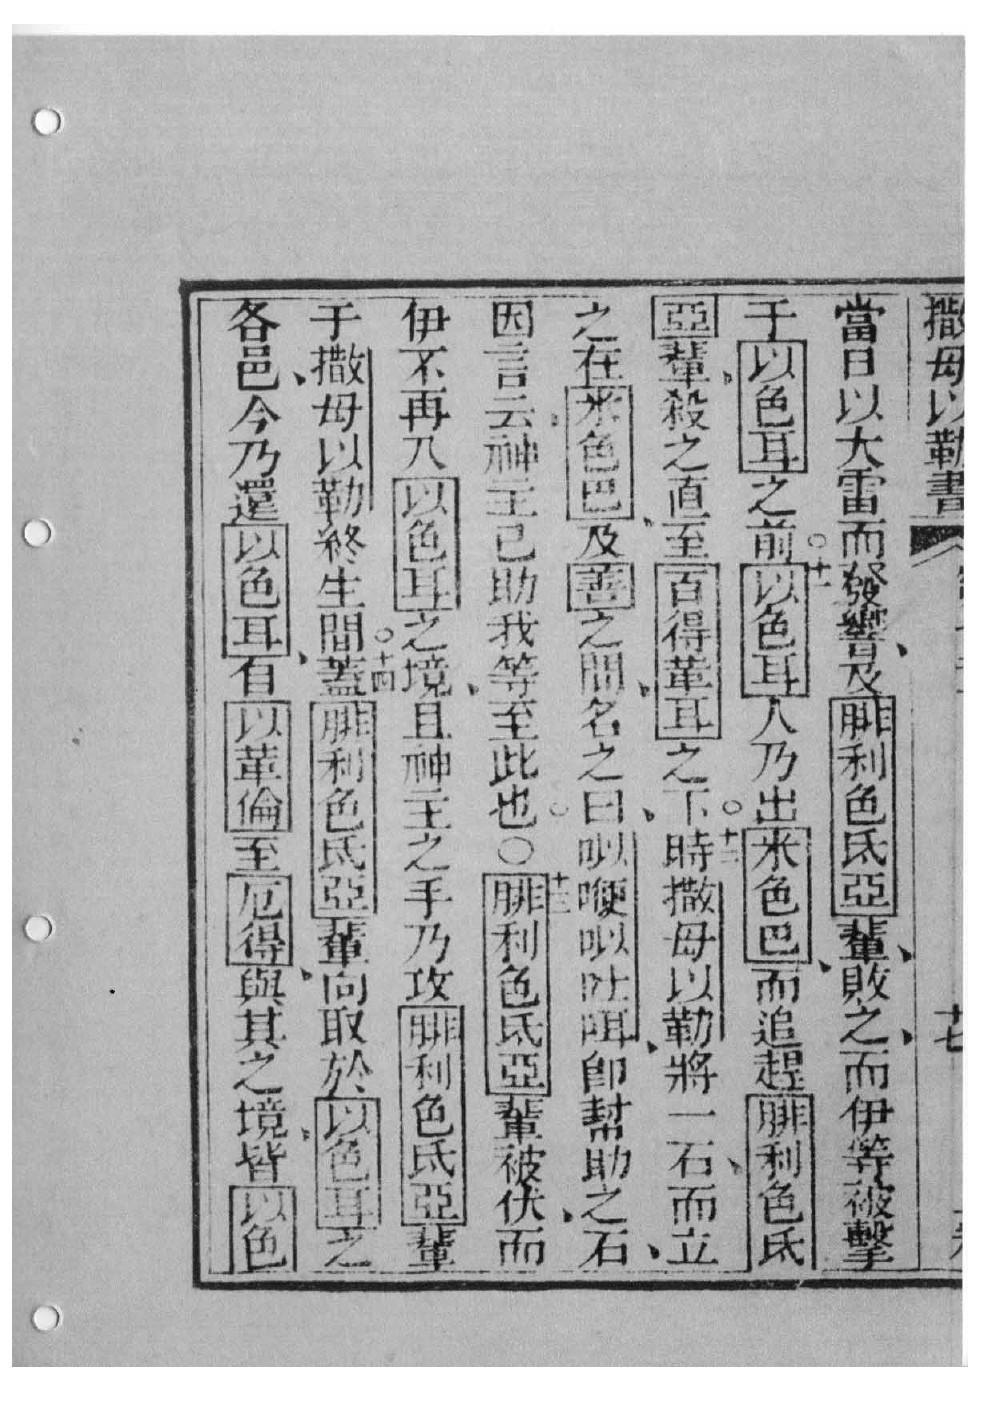 撒母以勒書
七
當日以大雷而發響及腓利色氐亞輩敗之而伊等被擊
于以色耳之前○十一以色耳人乃出米色巴而追趕腓利色氐
亞輩殺之直至百得革耳之下○十二時撒母以勒將一石而立
之在米色巴及善之間名之曰𠯁㖠𠯁吐咡卽幫助之石
因言云神主已助我等至此也○○十三腓利色氐亞輩被伏而
伊不再入以色耳之境且神主之手乃攻腓利色氐亞輩
于撒母以勒終生間○十四蓋腓利色氐亞輩向取於以色耳之
各邑今乃還以色耳自以革倫至厄得與其之境皆以色